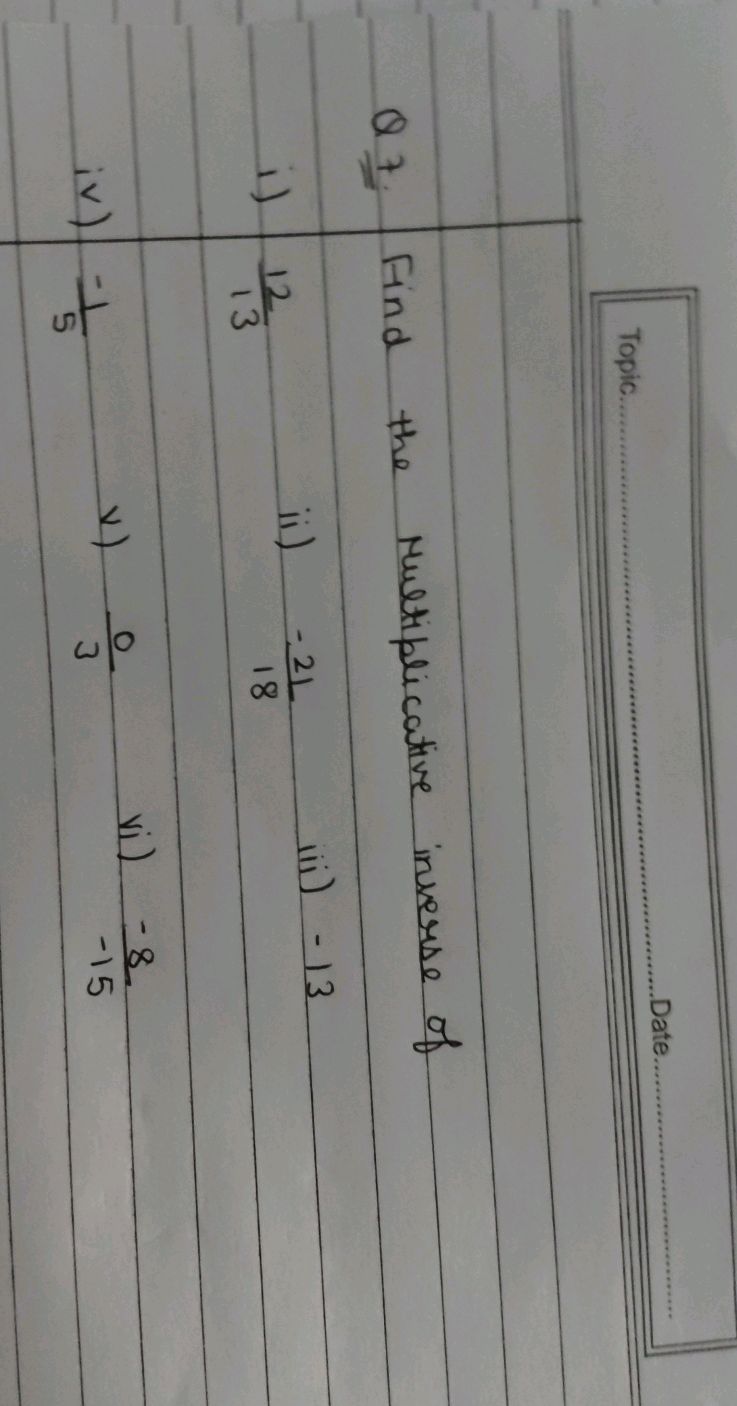 Topic.........................................Date.........................
Q 7. Find the Multiplicative inverse of
i) 12/13 ii) -21/18 iii) -13
iv) -1/5 v) 0/3 vi) -8/-15